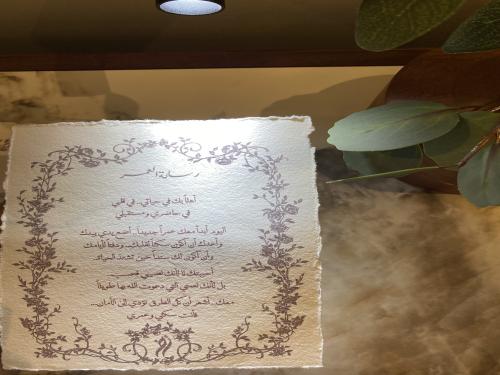 رسالة العمر
أهلاً بك في حياتي.. في قلبي
في حاضري ومستقبلي
اليوم أبدأ معك عمراً جديداً.. أضع يدي بيدك
وأعدك أن أكون سكناً لقلبك.. ودفئاً لأيامك
وأن أكون لك سنداً حين تشتد
أحببتك لا لأنك نصيبي فحسب
بل لأنك نصيبي التي دعوت الله بها طويلاً
معك.. أشعر أن كل الطرق تؤدي إلى الأمان..
فأنت سكني وعمري